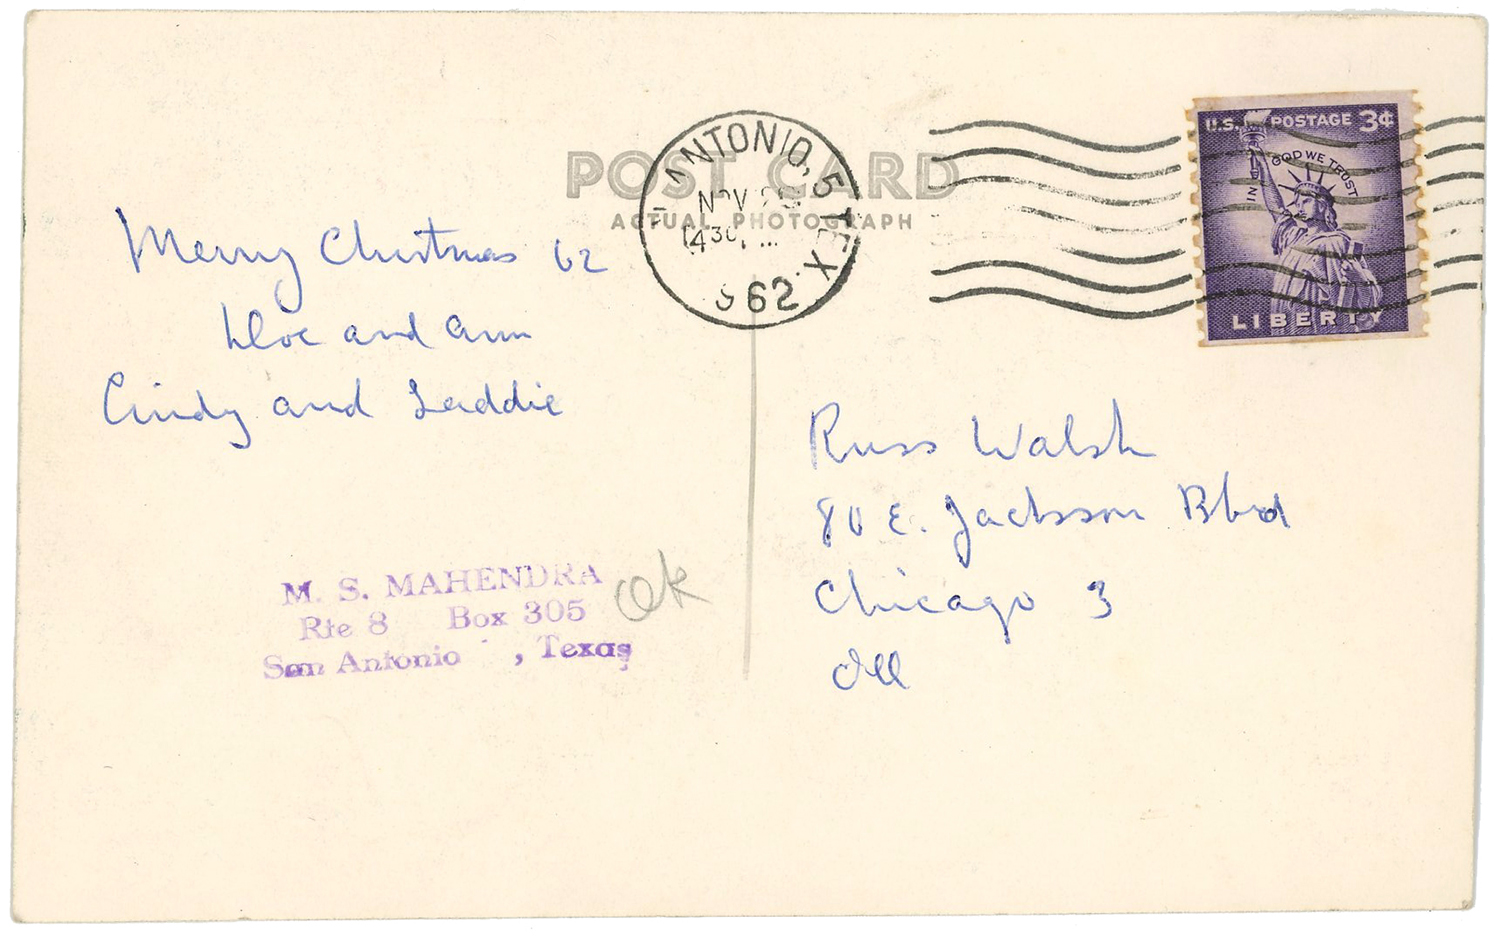 POST CARD
ACTUAL PHOTOGRAPH
ANTONIO, 5 TEX.
NOV
430
962
U.S. POSTAGE 3¢
IN GOD WE TRUST
LIBERTY
Merry Christmas 62
and Ann
Cindy and Laddie
M. S. MAHENDRA
Rte 8 Box 305
San Antonio , Texas
Ok
Russ Walsh
80 E. Jackson Blvd
Chicago 3
Ill